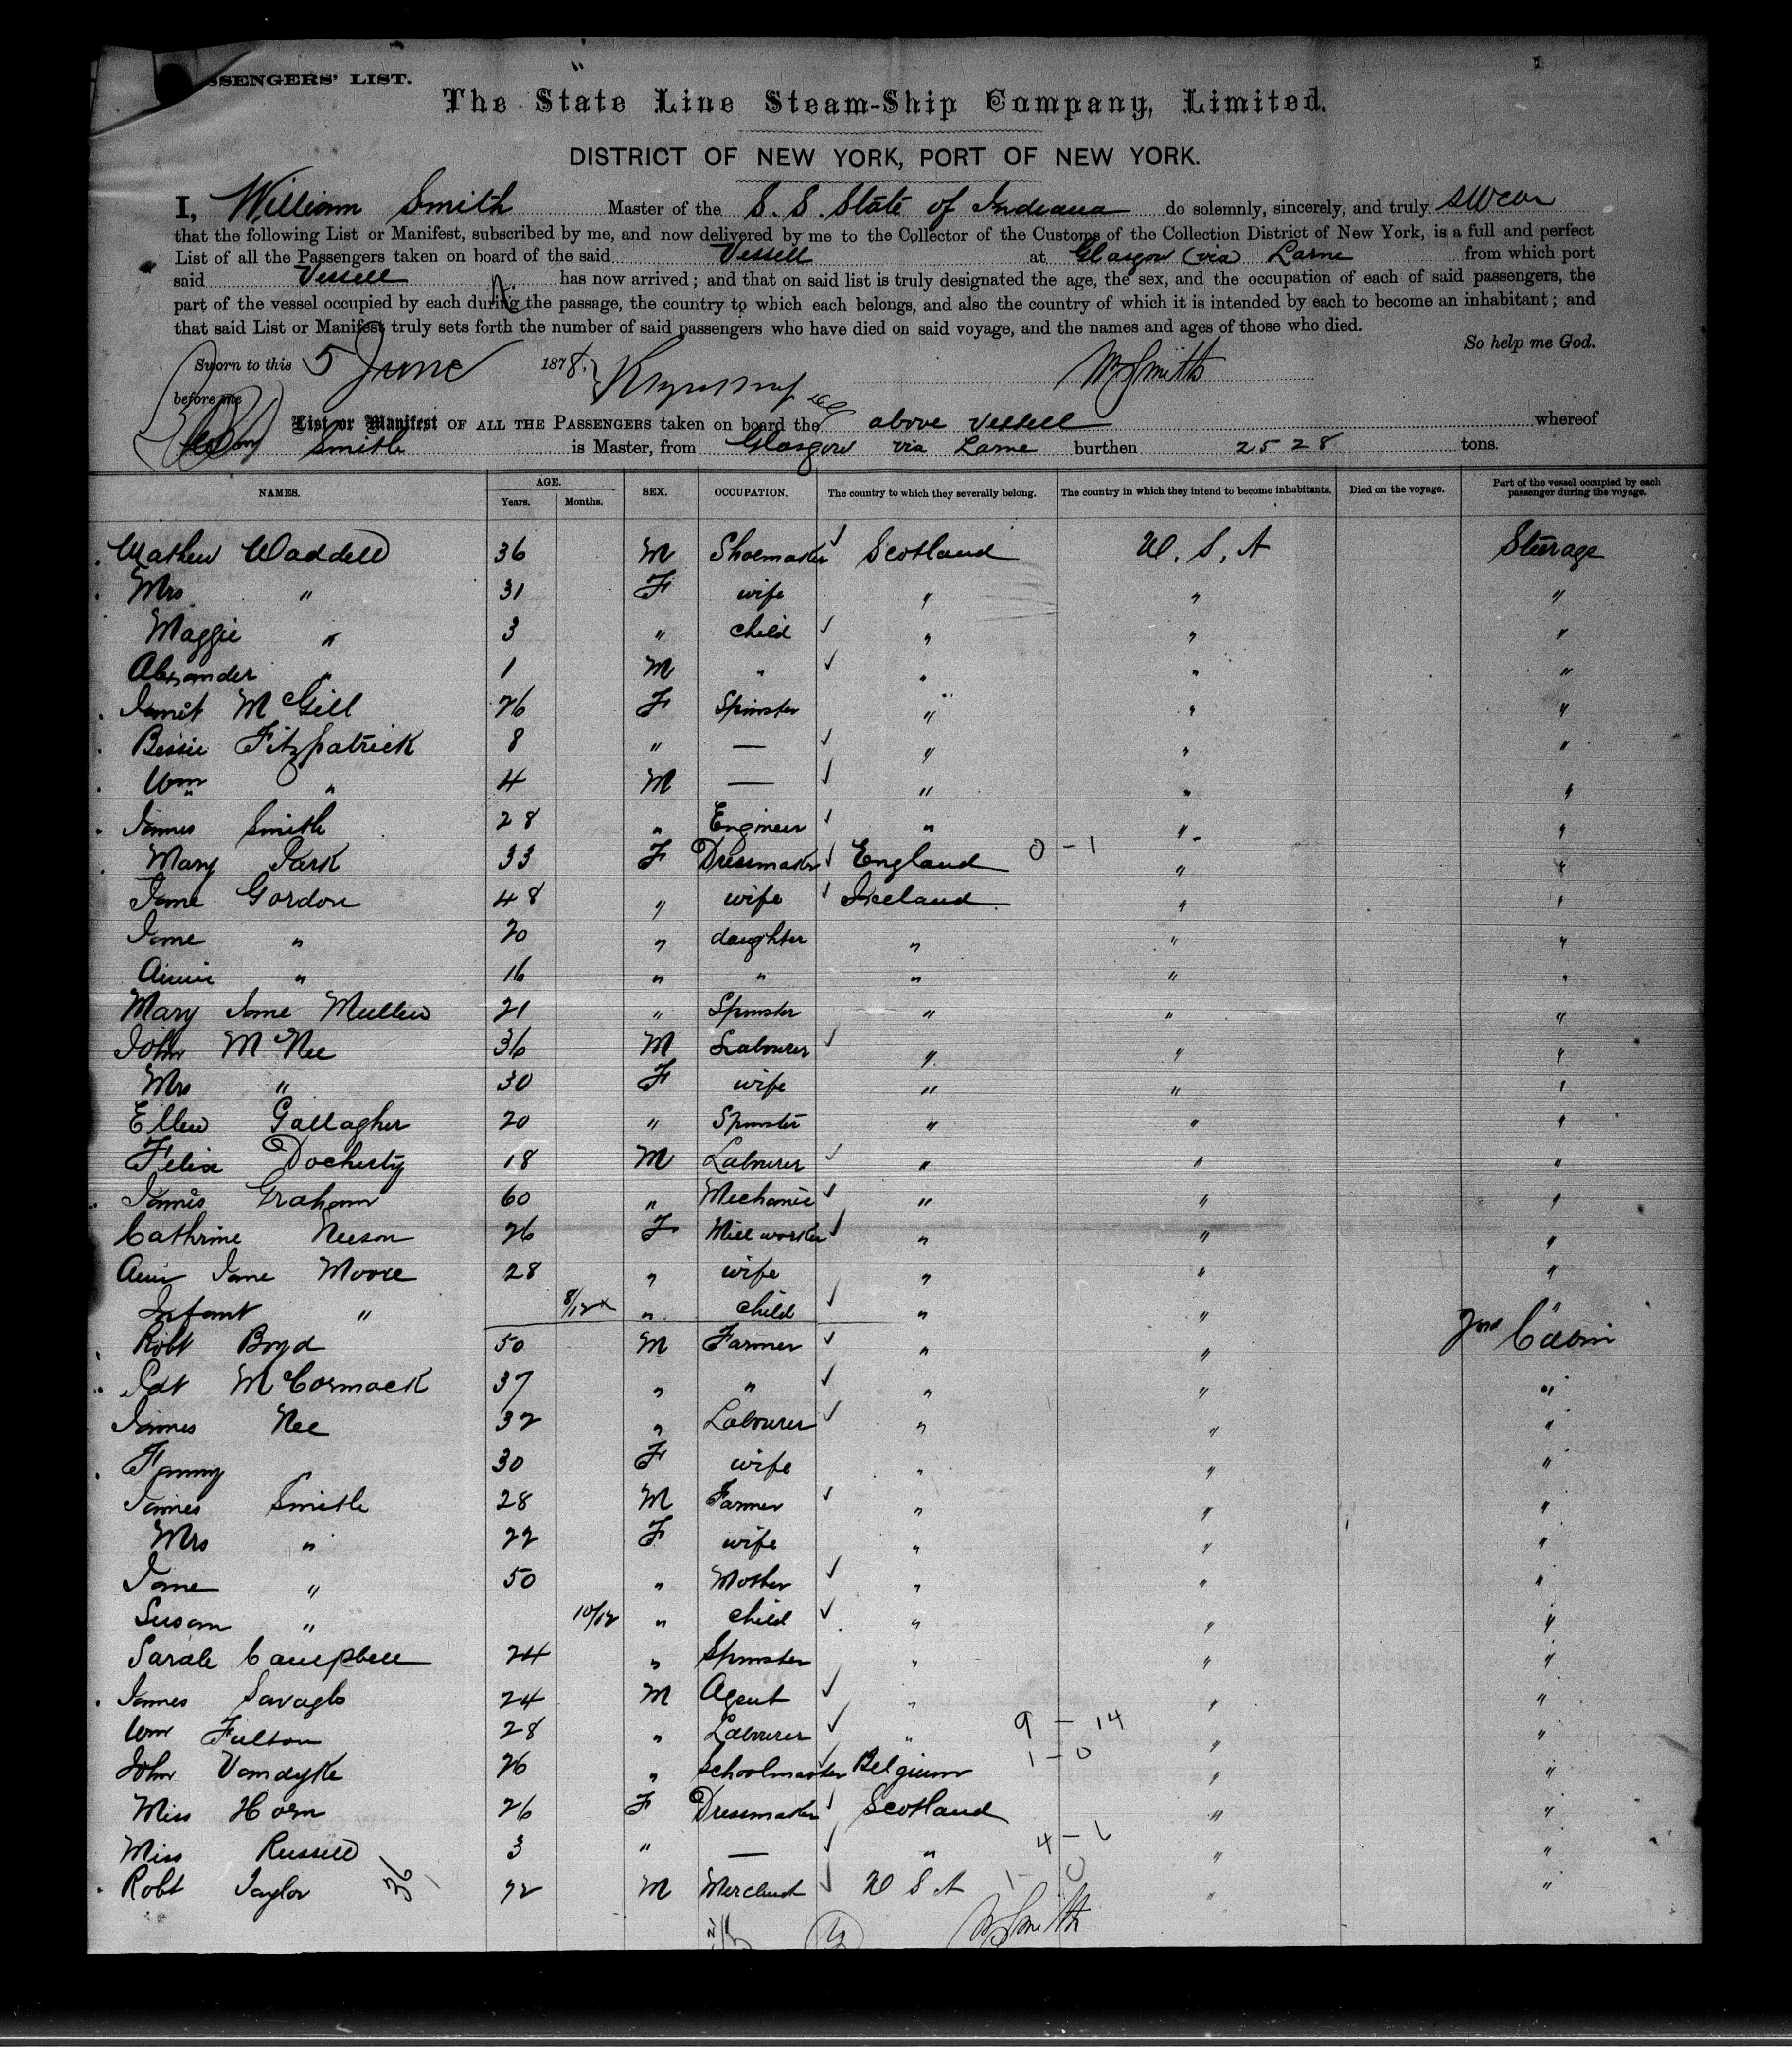 SSENGERS' LIST.
The State Line Steam-Ship Company, Limited.
DISTRICT OF NEW YORK, PORT OF NEW YORK.
I, William Smith Master of the S. S. State of Indiana do solemnly, sincerely, and truly swear
that the following List or Manifest, subscribed by me, and now delivered by me to the Collector of the Customs of the Collection District of New York, is a full and perfect
List of all the Passengers taken on board of the said Vessell at Glasgow (via) Larne from which port
said Vessell has now arrived; and that on said list is truly designated the age, the sex, and the occupation of each of said passengers, the
part of the vessel occupied by each during the passage, the country to which each belongs, and also the country of which it is intended by each to become an inhabitant; and
that said List or Manifest truly sets forth the number of said passengers who have died on said voyage, and the names and ages of those who died.
So help me God.
Sworn to this 5 June 1878. Wm Smith
before me
List or Manifest OF ALL THE PASSENGERS taken on board the above Vessell whereof
Smith is Master, from Glasgow via Larne burthen 2528 tons.
NAMES. AGE. Years. Months. SEX. OCCUPATION. The country to which they severally belong. The country in which they intend to become inhabitants. Died on the voyage. Part of the vessel occupied by each passenger during the voyage.
Mathew Waddell 36 M Shoemaker Scotland U. S. A Steerage
Mrs " 31 F wife " " "
Maggie " 3 " child " " "
Alexander " 1 M " " " "
Janet McGill 26 F Spinster " " "
Bessie Fitzpatrick 8 " — " " "
Wm " 4 M — " " "
James Smith 28 " Engineer " " "
Mary Park 33 F Dressmaker England 0 - 1 " "
Jane Gordon 48 " wife Ireland " "
Jane " 20 " daughter " " "
Annie " 16 " " " " "
Mary Jane Mullen 21 " Spinster " " "
John McNee 36 M Labourer " " "
Mrs " 30 F wife " " "
Ellen Gallagher 20 " Spinster " " "
Felix Docherty 18 M Labourer " " "
James Graham 60 " Mechanic " " "
Cathrine Neeson 26 F Mill worker " " "
Ann Jane Moore 28 " wife " " "
Infant " 8/12 " child " " "
Robt Boyd 50 M Farmer " " 2nd Cabin
Pat McCormack 37 " " " " "
James Nee 32 " Labourer " " "
Fanny 30 F wife " " "
James Smith 28 M Farmer " " "
Mrs " 22 F wife " " "
Jane " 50 " Mother " " "
Susan " 10/12 " child " " "
Sarah Campbell 24 " Spinster " " "
James 24 M Agent " " "
Wm Fulton 28 " Labourer " 9 - 14 " "
John Vandyke 26 " Schoolmaster Belgium 1 - 0 " "
Miss Horn 26 F Dressmaker Scotland " "
Miss Russell 3 " — " 4 - 6 " "
Robt Taylor 36 72 M Merchant U S A 1 - 0 " "
Wm Smith